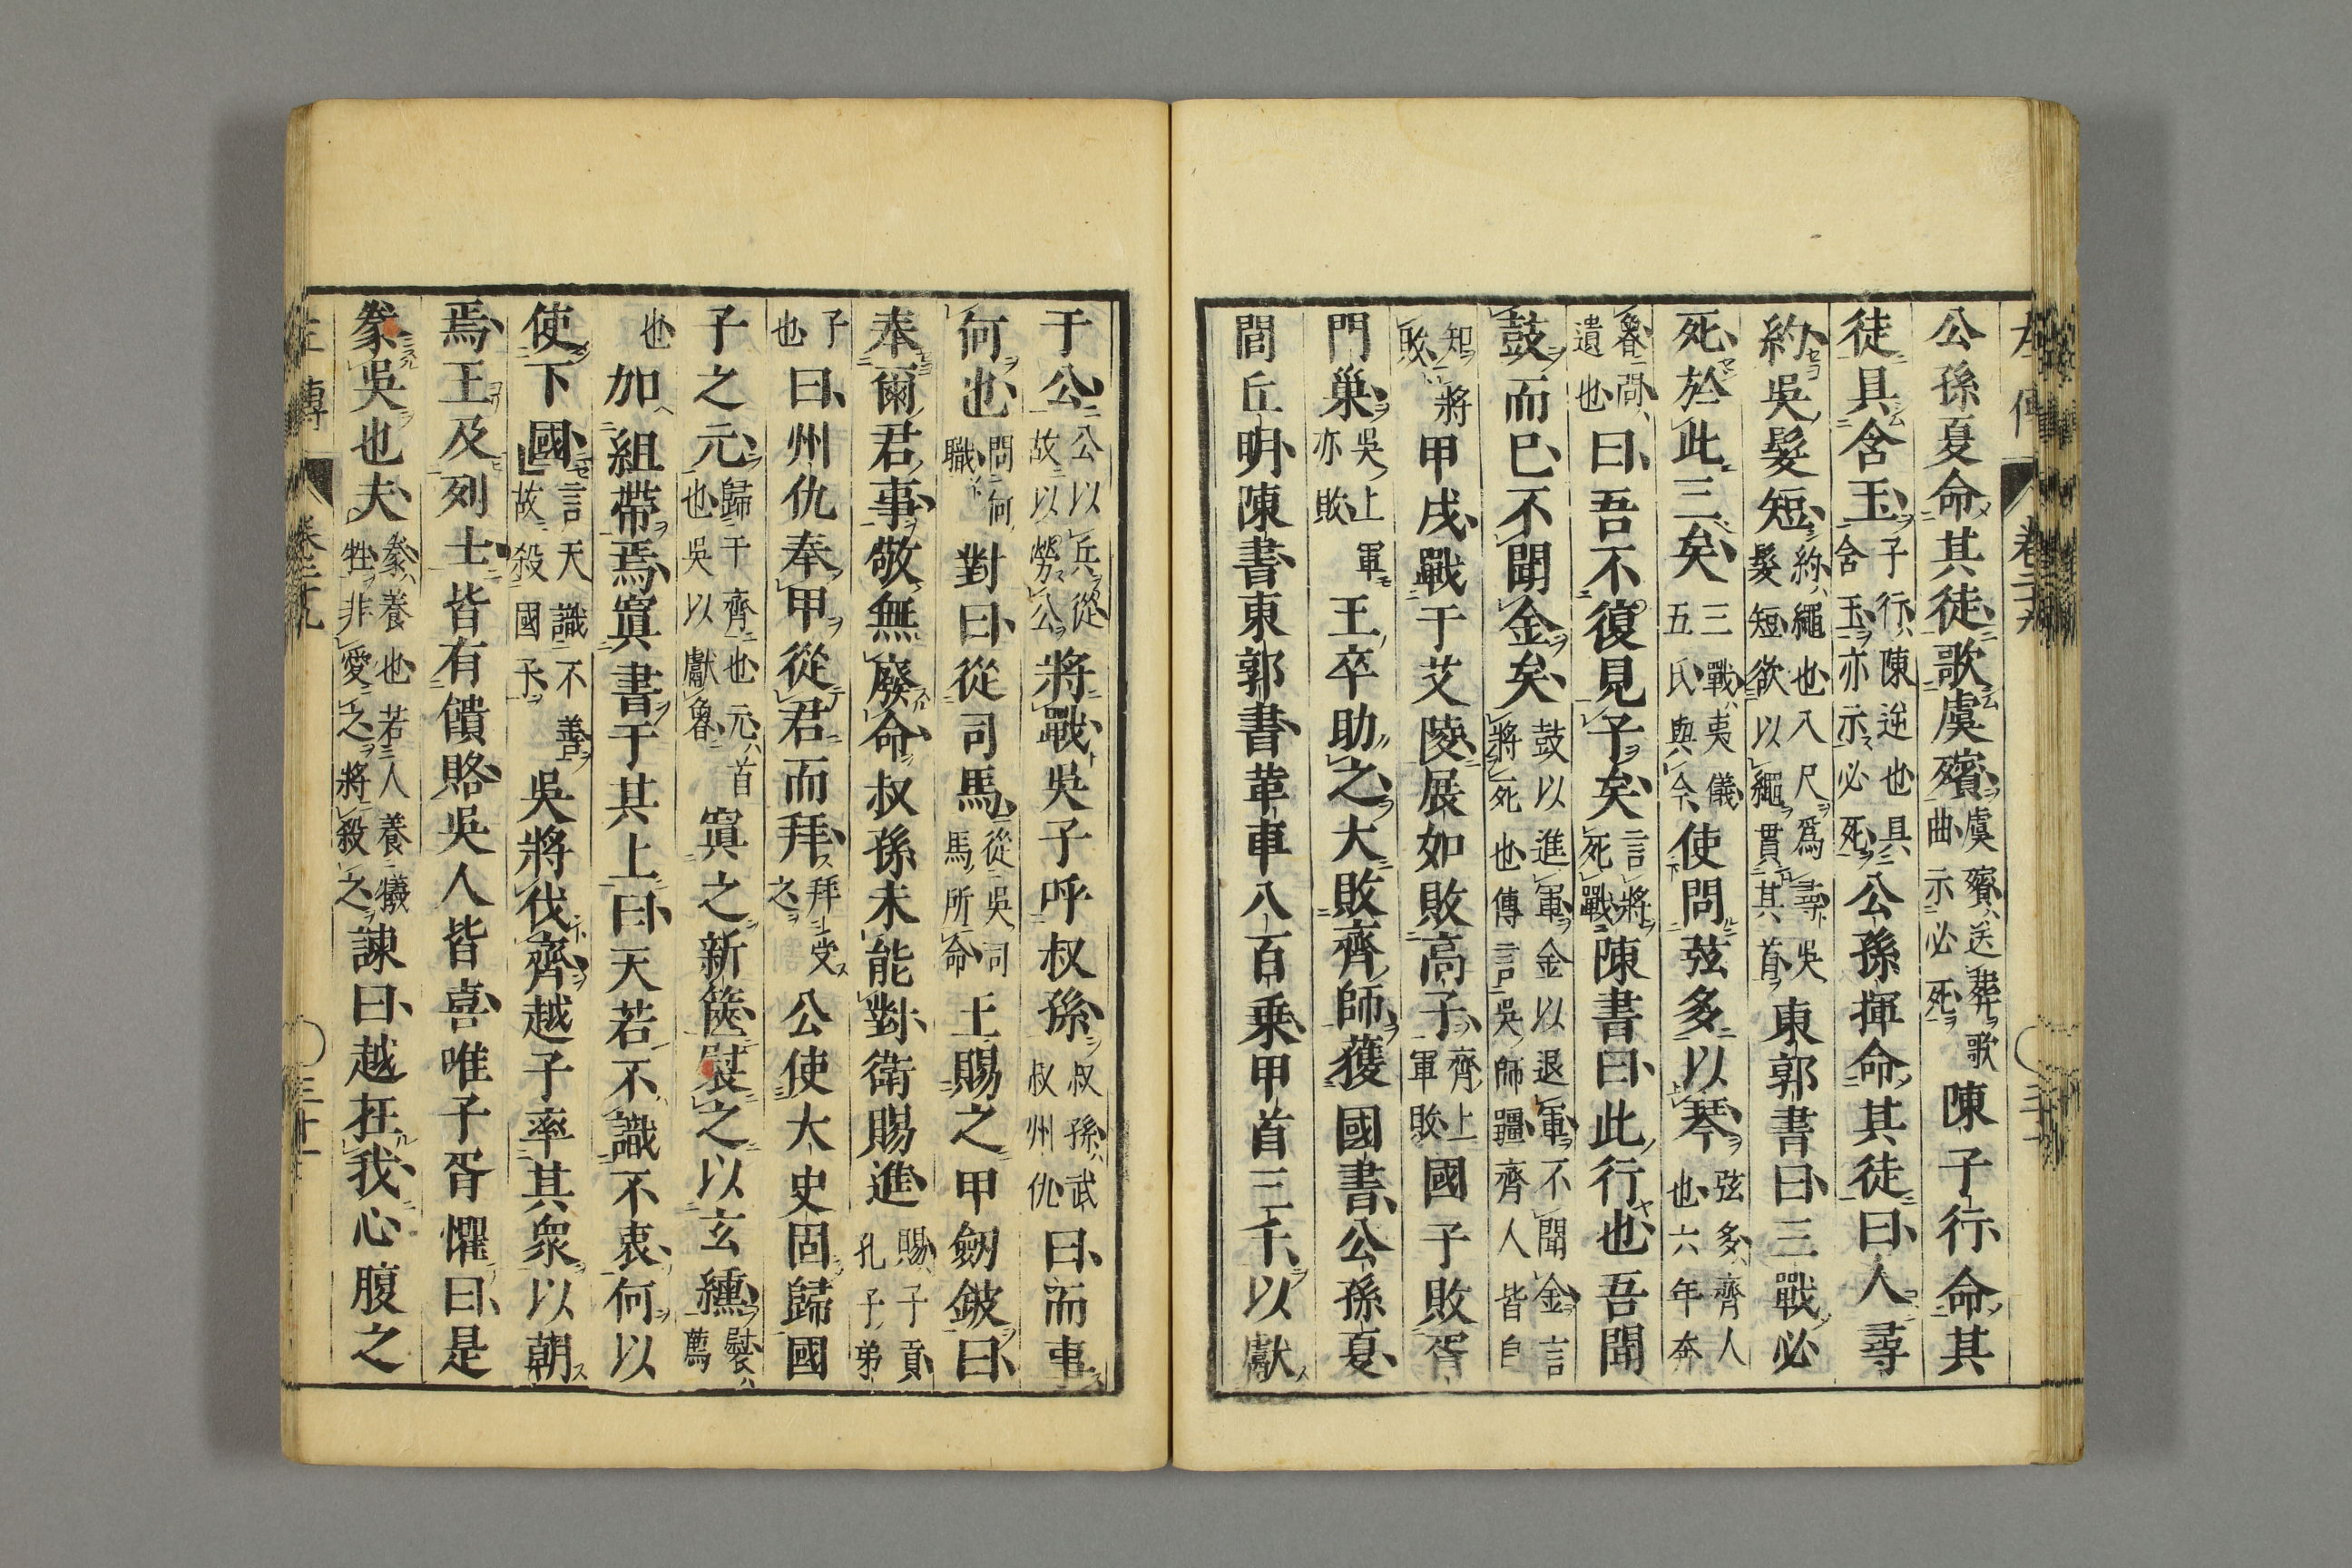 左傳 卷二十九 三十一
公孫夏命其徒歌虞殯虞殯送葬歌曲示必死陳子行命其
徒具含玉子行陳逆也具含玉亦示必死公孫揮命其徒曰人尋
約吳髮短約繩也八尺爲尋吳髮短欲以繩貫其首東郭書曰三戰必
死於此三矣三戰夷儀五氏與今使問弦多以琴弦多齊人也六年奔
魯問遺也曰吾不復見子矣言將死戰陳書曰此行也吾聞
鼓而已不聞金矣鼓以進軍金以退軍不聞金言將死也傳言吳師彊齊人皆自
知將敗甲戌戰于艾陵展如敗高子齊上軍敗國子敗胥
門巢吳上軍亦敗王卒助之大敗齊師獲國書公孫夏
閭丘明陳書東郭書革車八百乘甲首三千以獻
于公公以兵從故以勞公將戰吳子呼叔孫叔孫武叔州仇曰而事
何也問何職對曰從司馬從吳司馬所命王賜之甲劒鈹曰
奉爾君事敬無廢命叔孫未能對衛賜進賜子貢孔子弟
子也曰州仇奉甲從君而拜拜受之公使大史固歸國
子之元歸于齊也元首也吳以獻魯寘之新篋褽之以玄纁褽薦
也加組帶焉寘書于其上曰天若不識不衷何以
使下國言天識不善故殺國子吳將伐齊越子率其衆以朝
焉王及列士皆有饋賂吳人皆喜唯子胥懼曰是
豢吳也夫豢養也若人養犧牲非愛之將殺之諫曰越在我心腹之
左傳 卷二十九 三十一